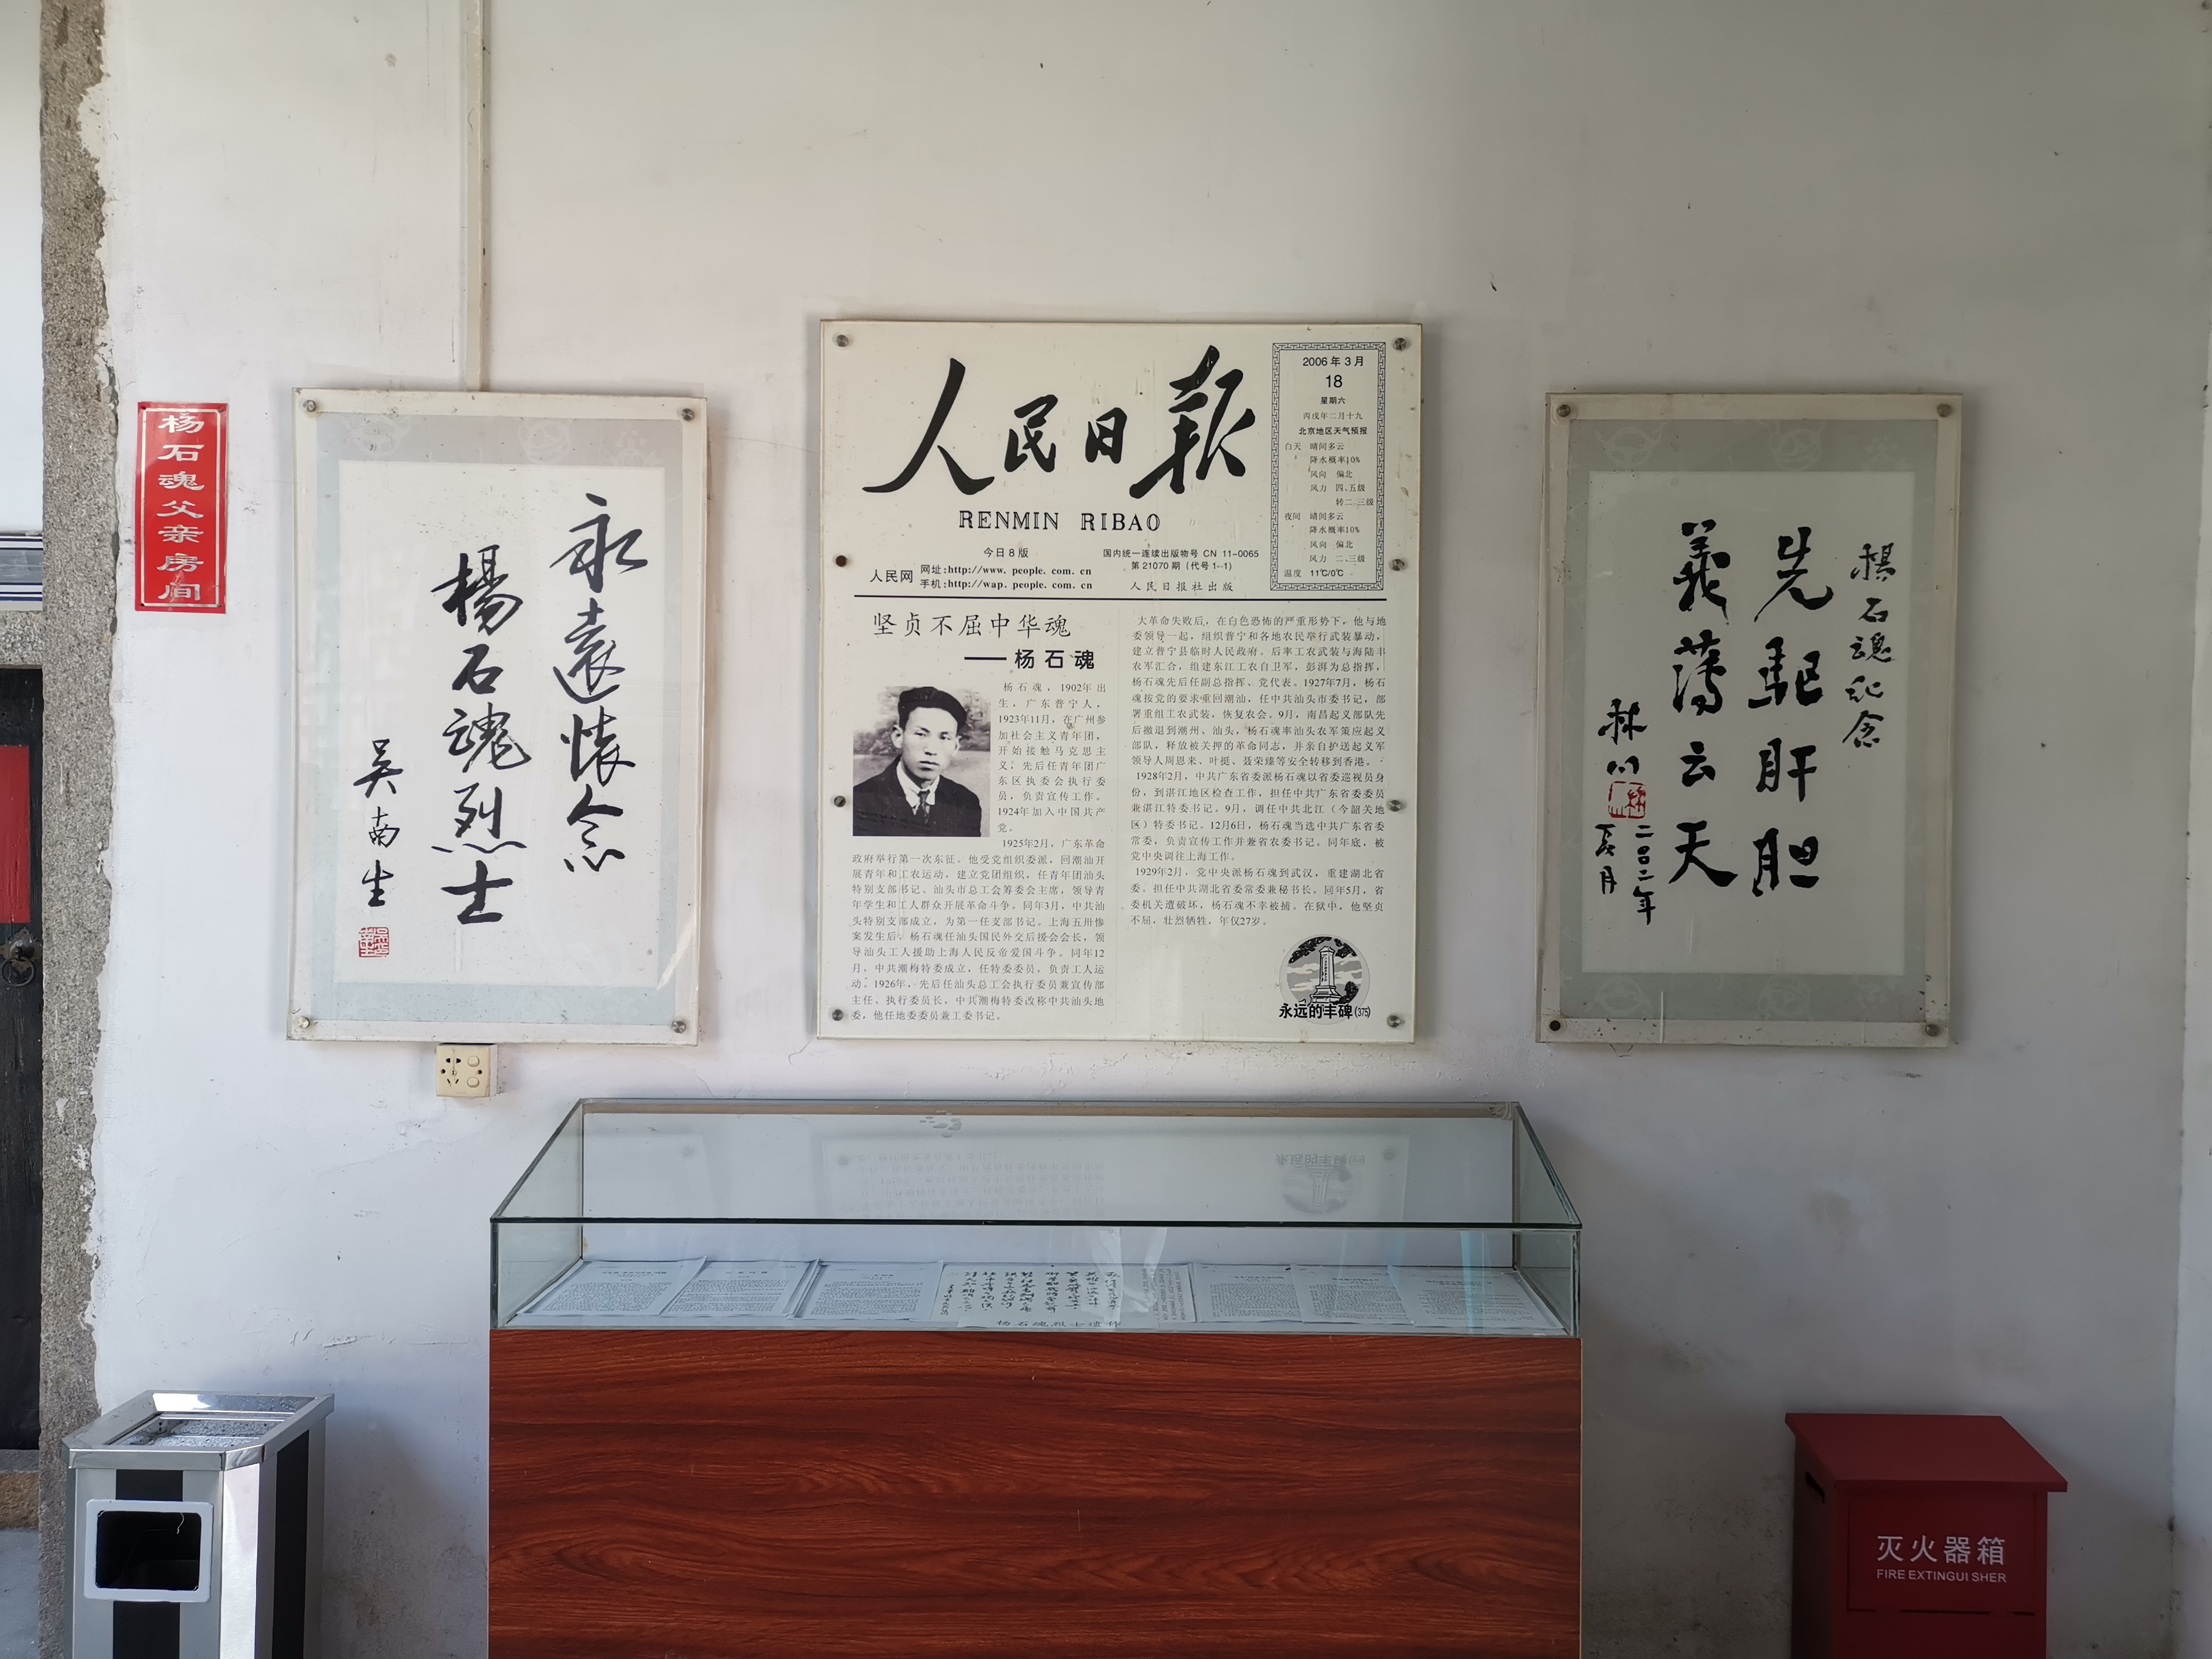 杨石魂父亲房间
永遠懷念
楊石魂烈士
吴南生
人民日报
RENMIN RIBAO
今日8版
国内统一连续出版物号 CN 11-0065
第21070期 (代号1-1)
人民网
网址:http://www.people.com.cn
手机:http://wap.people.com.cn
人民日报社出版
2006年3月
18
星期六
丙戌年二月十九
北京地区天气预报
白天 晴间多云
降水概率10%
风向 偏北
风力 四、五级
转二、三级
夜间 晴间多云
降水概率10%
风向 偏北
风力 二、三级
温度 11℃/0℃
坚贞不屈中华魂
——杨石魂
杨石魂，1902年出
生，广东普宁人，
1923年11月，在广州参
加社会主义青年团，
开始接触马克思主
义。先后任青年团广
东区执委会执行委
员，负责宣传工作。
1924年加入中国共产
党。
1925年2月，广东革命
政府举行第一次东征。他受党组织委派，回潮汕开
展青年和工农运动，建立党团组织，任青年团汕头
特别支部书记、汕头市总工会筹委会主席，领导青
年学生和工人群众开展革命斗争。同年3月，中共汕
头特别支部成立，为第一任支部书记。上海五卅惨
案发生后，杨石魂任汕头国民外交后援会会长，领
导汕头工人援助上海人民反帝爱国斗争。同年12
月，中共潮梅特委成立，任特委委员，负责工人运
动。1926年，先后任汕头总工会执行委员兼宣传部
主任、执行委员长，中共潮梅特委改称中共汕头地
委，他任地委委员兼工委书记。
大革命失败后，在白色恐怖的严重形势下，他与地
委领导一起，组织普宁和各地农民举行武装暴动，
建立普宁县临时人民政府。后率工农武装与海陆丰
农军汇合，组建东江工农自卫军，彭湃为总指挥，
杨石魂先后任副总指挥、党代表。1927年7月，杨石
魂按党的要求重回潮汕，任中共汕头市委书记，部
署重组工农武装，恢复农会。9月，南昌起义部队先
后撤退到潮州、汕头，杨石魂率汕头农军策应起义
部队，释放被关押的革命同志，并亲自护送起义军
领导人周恩来、叶挺、聂荣臻等安全转移到香港。
1928年2月，中共广东省委派杨石魂以省委巡视员身
份，到湛江地区检查工作，担任中共广东省委委员
兼湛江特委书记。9月，调任中共北江（今韶关地
区）特委书记。12月6日，杨石魂当选中共广东省委
常委，负责宣传工作并兼省农委书记。同年底，被
党中央调往上海工作。
1929年2月，党中央派杨石魂到武汉，重建湖北省
委。担任中共湖北省委常委兼秘书长。同年5月，省
委机关遭破坏，杨石魂不幸被捕。在狱中，他坚贞
不屈，壮烈牺牲，年仅27岁。
永远的丰碑(375)
楊石魂紀念
先駆肝胆
義薄云天
林川
二〇〇二年
杨石魂烈士遗作
灭火器箱
FIRE EXTINGUISHER